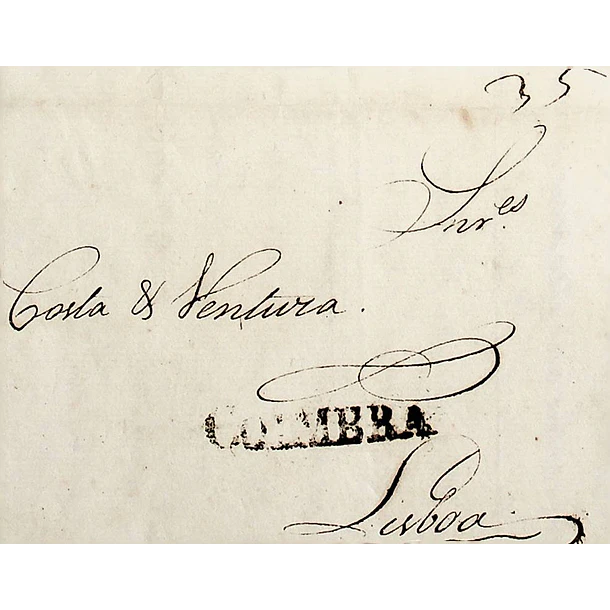 35
Snr.es
Costa & Ventura.
COIMBRA
Lisboa